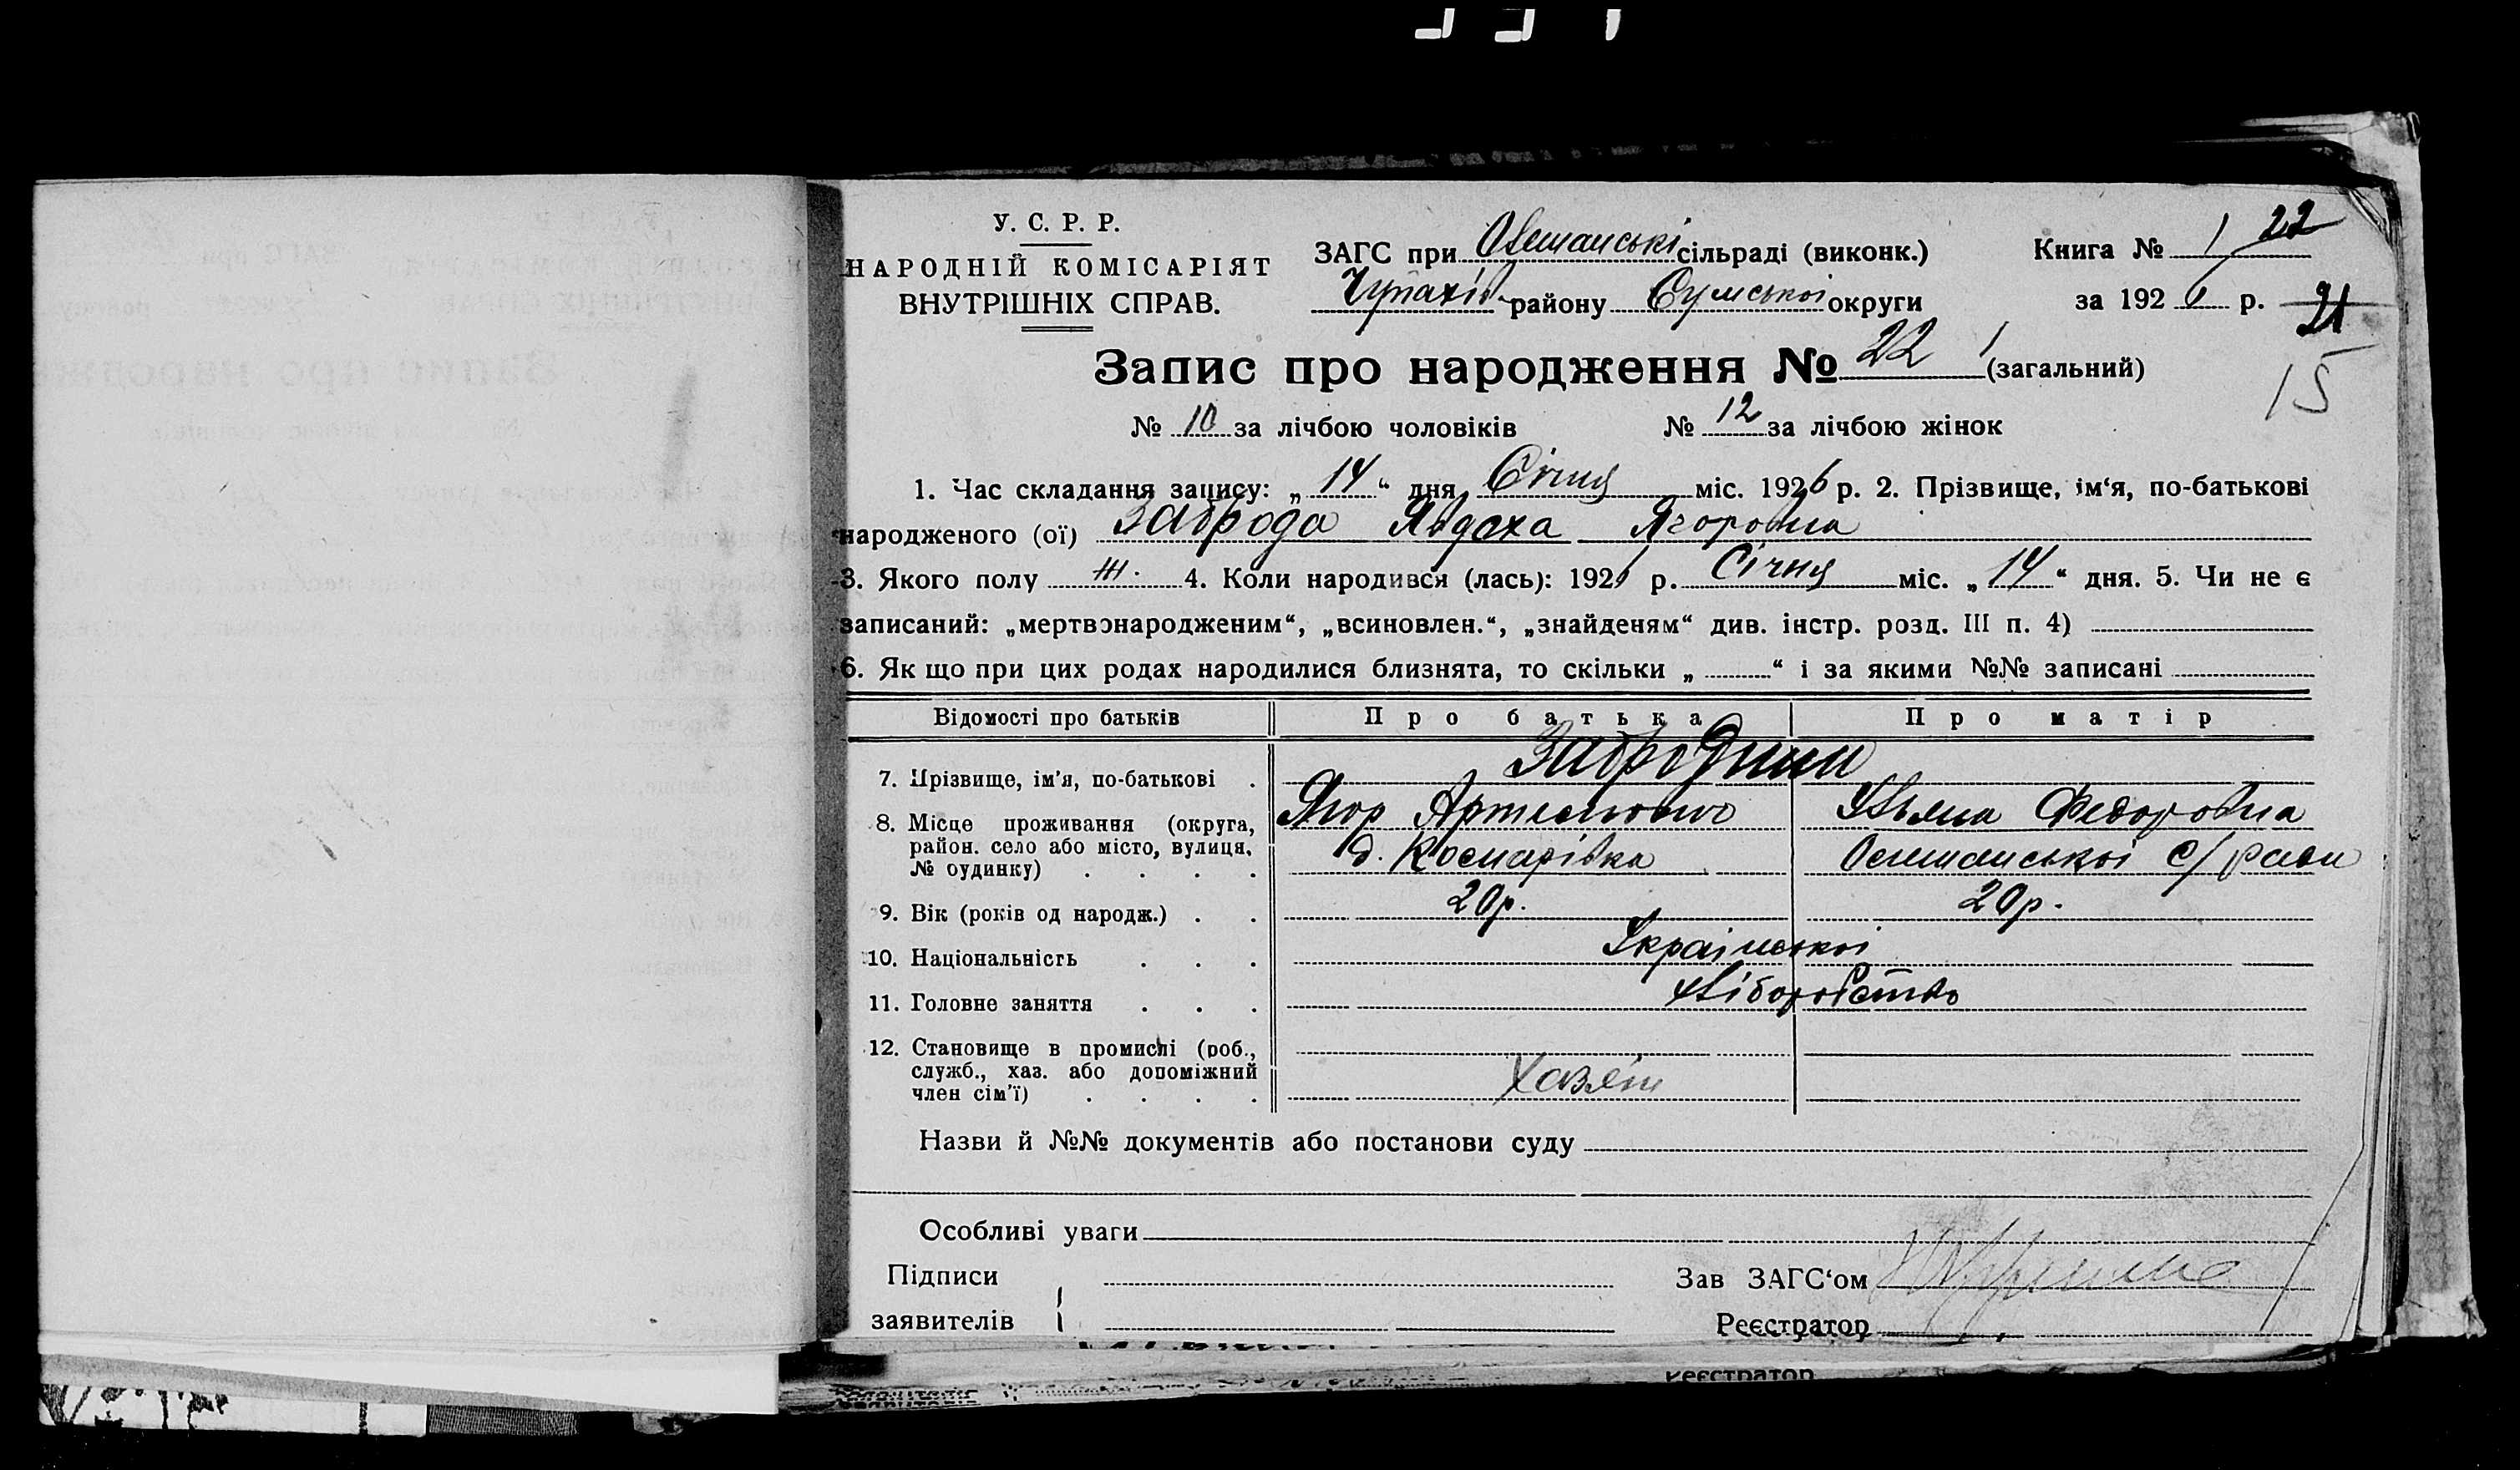 У. С. Р. Р.
НАРОДНІЙ КОМІСАРІЯТ
ВНУТРІШНІХ СПРАВ.
ЗАГС при сільраді (виконк.)
Чупахів району Сумської округи
Книга № 1 22
за 1926 р. 21
15
Запис про народження № 22 (загальний)
№ 10 за лічбою чоловіків № 12 за лічбою жінок
1. Час складання запису: „14“ дня Січня міс. 1926 р. 2. Прізвище, ім‘я, по-батькові
народженого (ої) Заброда Явдоха Ягоровна
3. Якого полу ж. 4. Коли народився (лась): 1926 р. Січня міс. „14“ дня. 5. Чи не є
записаний: „мертвонародженим“, „всиновлен.“, „знайденям“ див. інстр. розд. III п. 4)
6. Як що при цих родах народилися близнята, то скільки „ “ і за якими №№ записані
Відомості про батьків Про батька Про матір
7. Прізвище, ім’я, по-батькові .
8. Місце проживання (округа, район. село або місто, вулиця, № будинку) . . . .
Ягор Артемович Ульяна Федоровна
с/ради
9. Вік (років од народж.) . . 20р. 20р.
10. Національність . . . Української
11. Головне заняття . . . хліборобство
12. Становище в промислі (роб., служб., хаз. або допоміжний член сім’ї) . . . . Хазяін
Назви й №№ документів або постанови суду
Особливі уваги
Підписи
заявителів
Зав ЗАГС‘ом
Реєстратор
Реєстратор